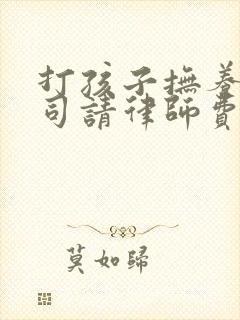 打孩子撫養
司請律師費
莫如歸